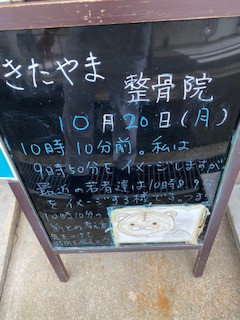 きたやま
整骨院
10月20日(月)
10時10分前。私は
9時50分をイメージしますが
最近の若者達は10時8.9
をイメージする様です。つまり
10時10分の
前との考え